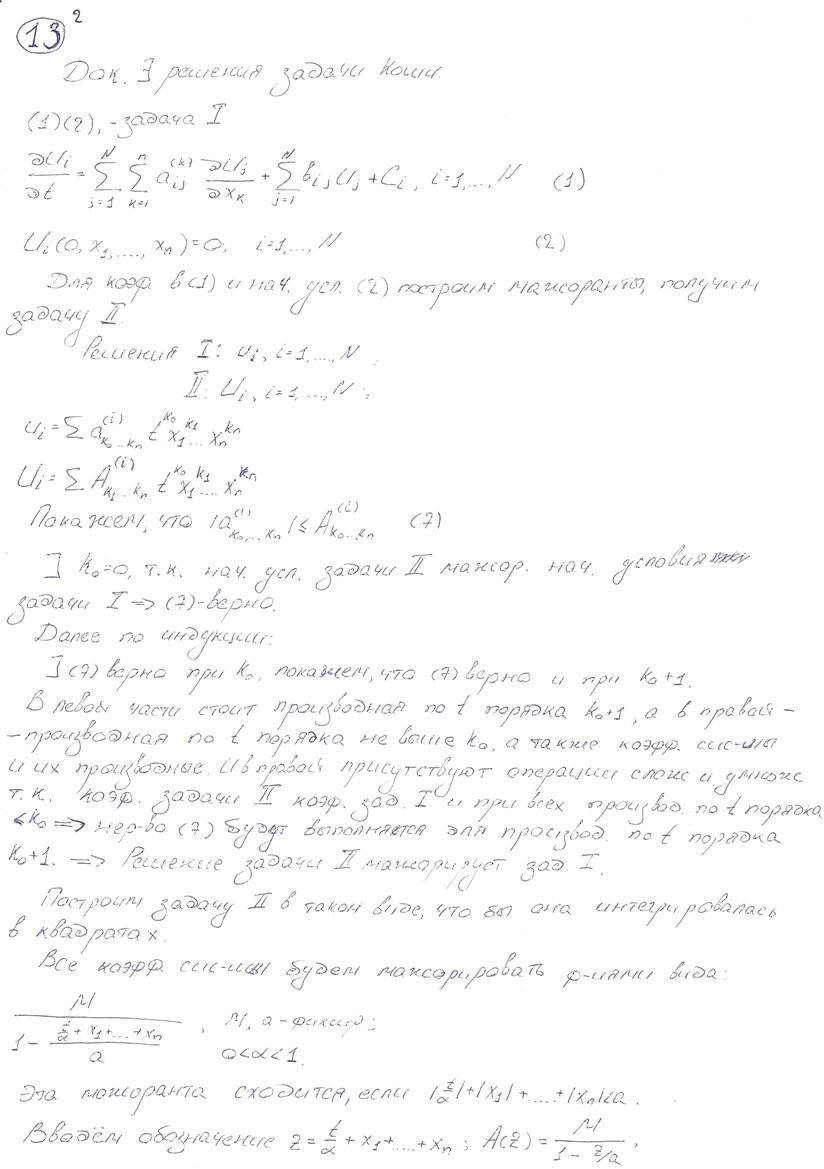 13 2
Док. ∃ решения задачи Коши.
(1)(2), - задача I
∂Ui/∂t = ∑_{j=1}^{N} ∑_{k=1}^{n} a_{ij}^{(k)} ∂Uj/∂x_k + ∑_{j=1}^{N} b_{ij} U_j + C_i, i=1,...,N (1)
U_i(0, x_1,...., x_n)=0, i=1,...,N (2)
Для коэф. в (1) и нач. усл. (2) построим мажоранты, получим
задачу II.
Решения I: u_i, i=1,...,N ;
II: U_i, i=1,...,N ;
u_i = ∑ a_{k_0...k_n}^{(i)} t^{k_0} x_1^{k_1} ... x_n^{k_n}
U_i = ∑ A_{k_1...k_n}^{(i)} t^{k_0} x_1^{k_1} .... x_n^{k_n}
Покажем, что |a_{k_0,...,k_n}^{(i)}| ≤ A_{k_0...k_n}^{(i)} (7)
] k_0=0, т.к. нач. усл. задачи II мажор. нач. условия
задачи I => (7)-верно.
Далее по индукции:
] (7) верно при k_0, покажем, что (7) верно и при k_0+1.
В левой части стоит производная по t порядка k_0+1, а в правой -
- производная по t порядка не выше k_0, а также коэфф. сис-мы
и их производные. И в правой присутствуют операции слож и умнож
т.к. коэф. задачи II коэф. зад. I и при всех производ. по t порядка
≤k_0 => нер-во (7) будет выполняется для производ. по t порядка
k_0+1. => Решение задачи II мажорирует зад. I.
Построим задачу II в таком виде, что бы она интегрировалась
в квадратах.
Все коэфф. сис-мы будем мажорировать ф-иями вида:
M / (1 - (t/α + x_1 + ... + x_n)/a) , M, a - фиксир;
0<α<1.
Эта мажоранта сходится, если |t/α|+|x_1|+....+|x_n|<a.
Введём обозначение z = t/α + x_1+....+x_n ; A(z) = M/(1 - z/a) ,